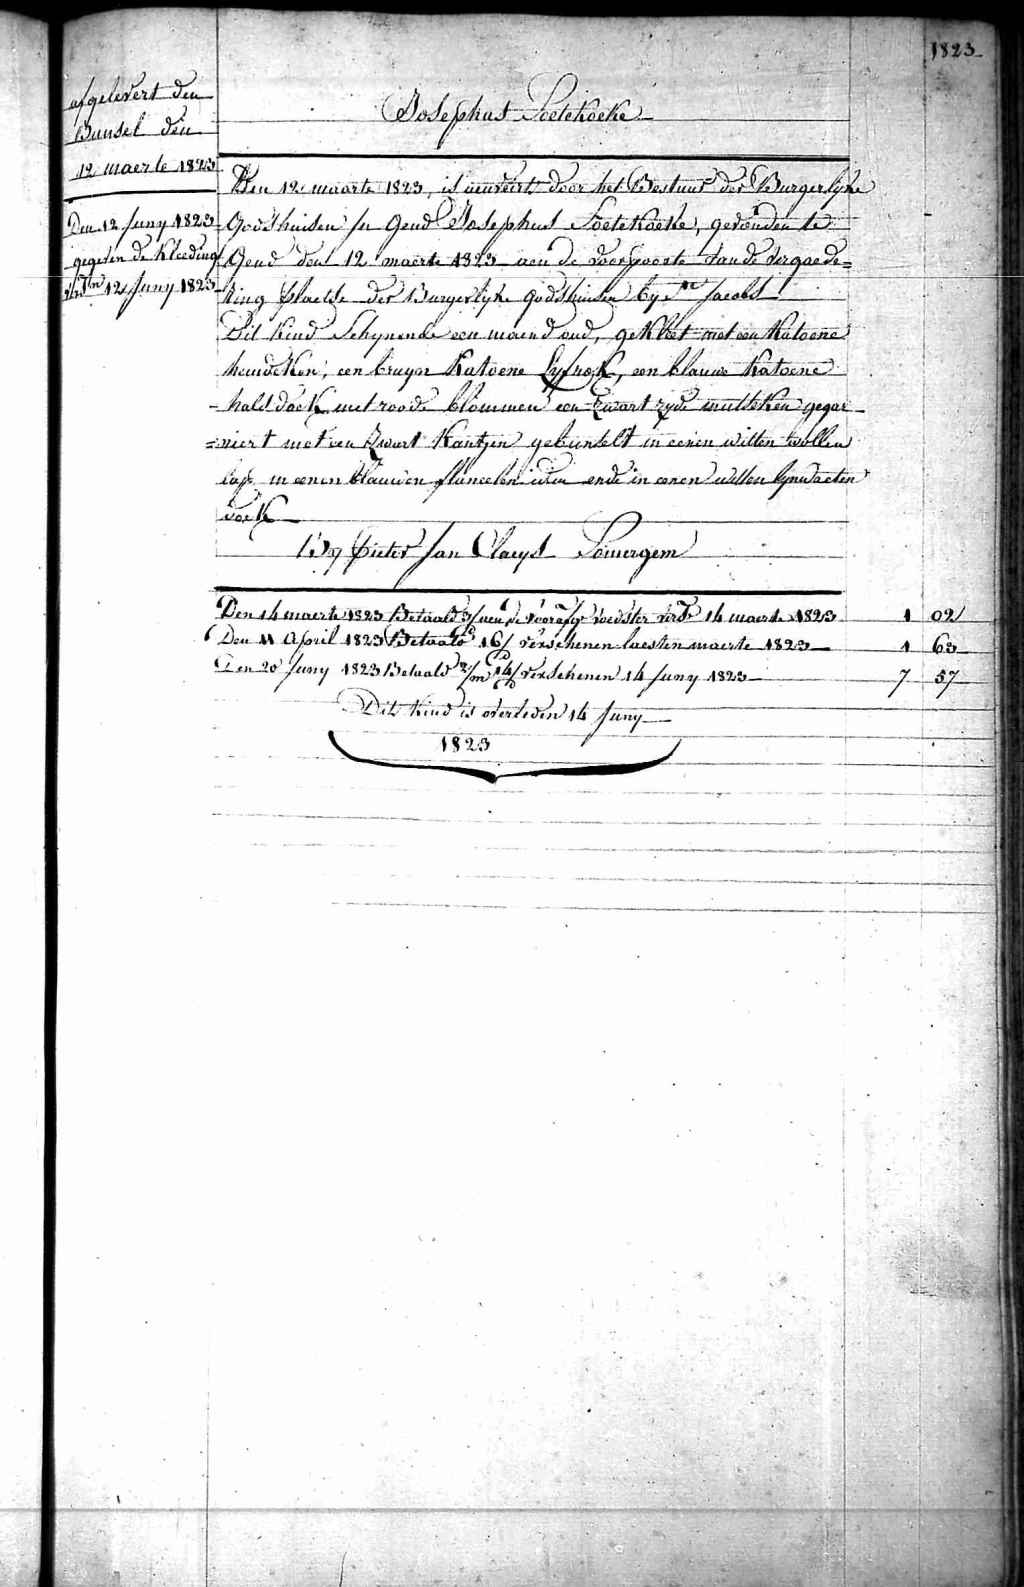 1823
afgelevert den
Bunsel den
12 maerte 1823
Den 12 Juny 1823
gegeven de Kleeding
12 Juny 1823
Josephus Soetekoeke
Den 12 maarte 1823, is aenveert door het Bestuur der Burgerlyke
Godshuisen te Gend Josephus Soetekoeke, gevonden te
Gend den 12 maerte 1823 aen de voorpoorte van de vergaede=
ring plaetse der Burgerlyke godshuisen by St Jacobs
Dit kind Schynende een maend oud, gekleet met een Katoene
hemdeken, een bruyn Katoene Lyfrok, een blauw Katoene
hals doek met roode blommen een Zwart zyde mutseken gegar=
=niert met een Zwart Kantjen gebunselt in eenen witten wollen
lap in eenen blauwen flaneelen ende in eenen witten lynwaeten
doek
By Pieter Jan Claeys Somergem
Den 14 maerte 1823 Betaald voedster 14 maerte 1823 1 02
Den 11 April 1823 Betaald 16/ verschenen laesten maerte 1823 1 63
Den 20 Juny 1823 Betaald 2/m 14/ verschenen 14 Juny 1823 7 57
Dit kind is overleden 14 Juny
1823